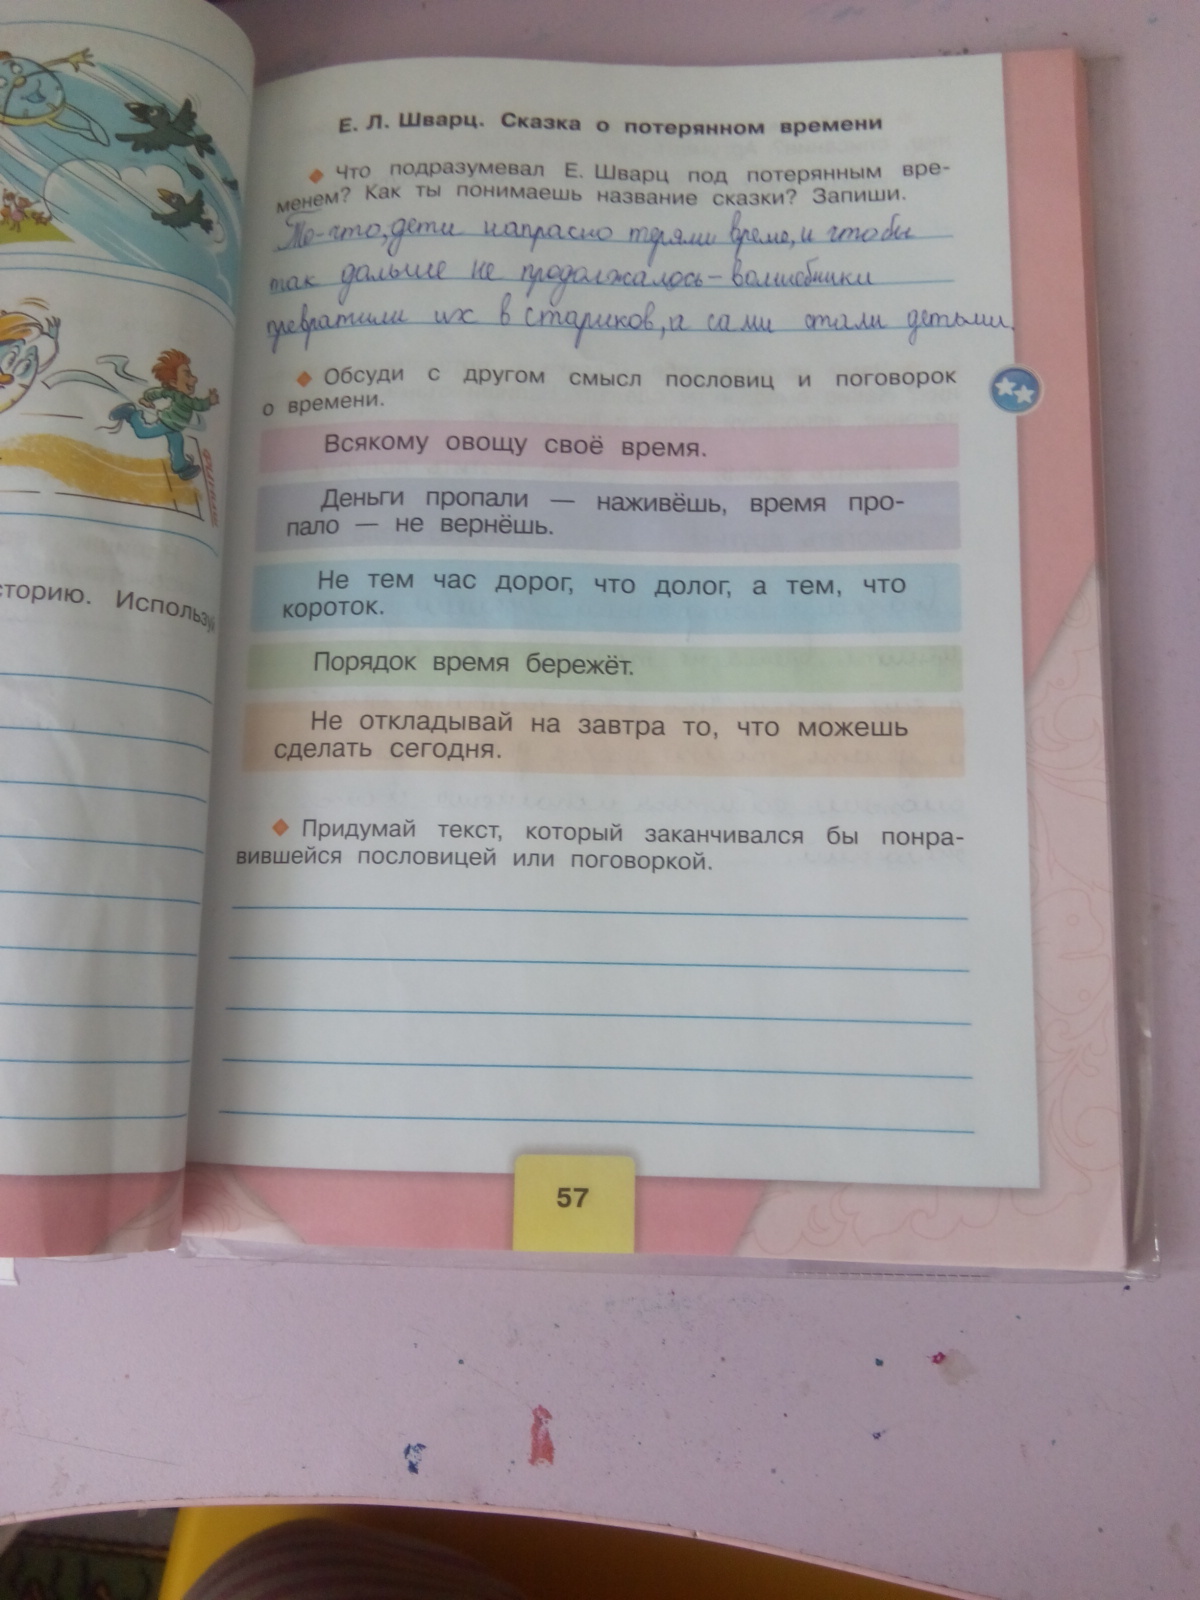 Е. Л. Шварц. Сказка о потерянном времени
Что подразумевал Е. Шварц под потерянным вре-
менем? Как ты понимаешь название сказки? Запиши.
То-что, дети напрасно теряли время, и чтобы
так дальше не продолжалось – волшебники
превратили их в стариков, а сами стали детьми.
Обсуди с другом смысл пословиц и поговорок
о времени.
Всякому овощу своё время.
Деньги пропали — наживёшь, время про-
пало — не вернёшь.
Не тем час дорог, что долог, а тем, что
короток.
Порядок время бережёт.
Не откладывай на завтра то, что можешь
сделать сегодня.
Придумай текст, который заканчивался бы понра-
вившейся пословицей или поговоркой.
57
сторию. Используй